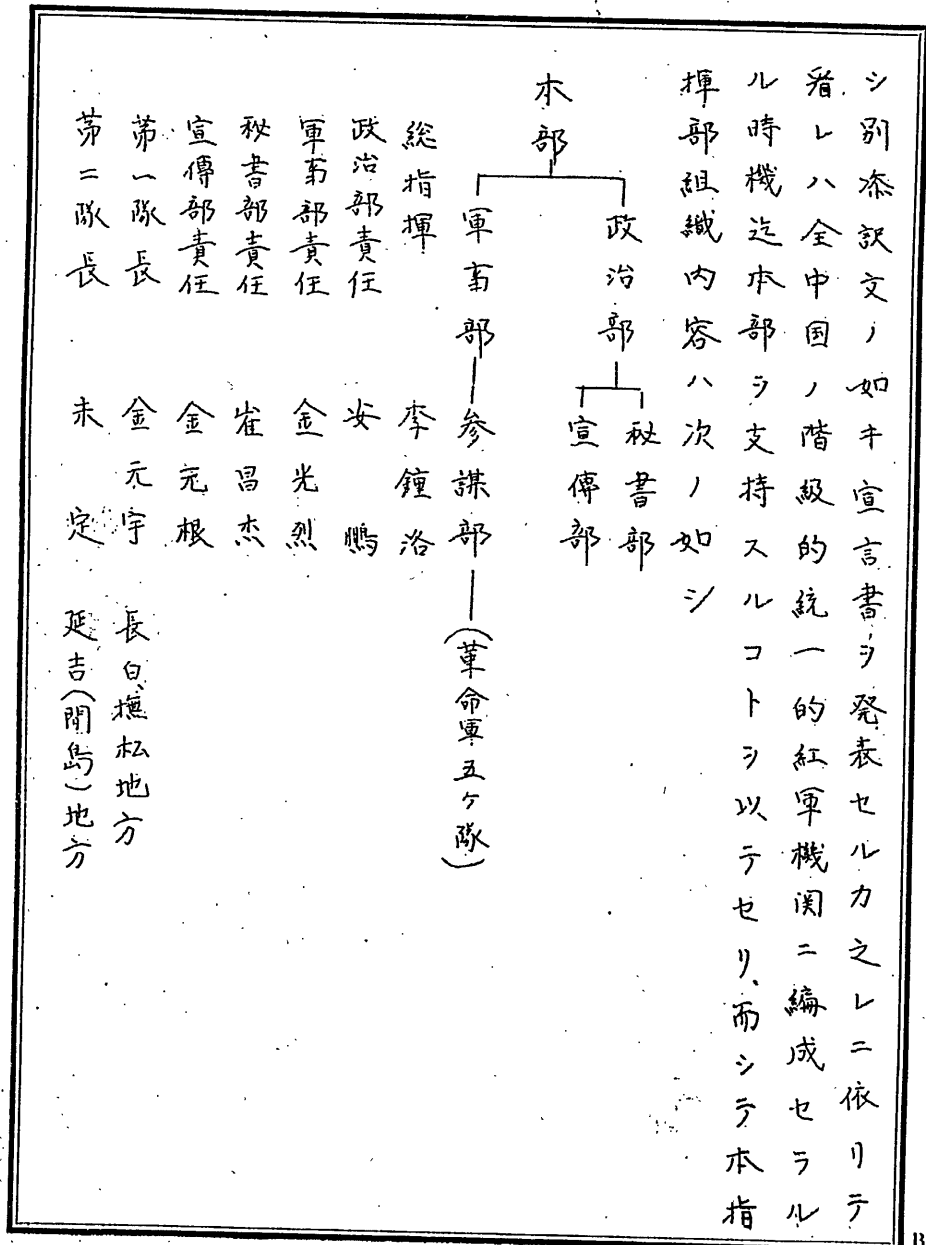 シ別添訳文ノ如キ宣言書ヲ発表セルカ之レニ依リテ
看レハ全中国ノ階級的統一的紅軍機関ニ編成セラル
ル時機迄本部ヲ支持スルコトヲ以テセリ、而シテ本指
揮部組織内容ハ次ノ如シ
本部
政治部
秘書部
宣傳部
軍事部―参謀部―(革命軍五ケ隊)
総指揮 李鐘洛
政治部責任 安鵬
軍事部責任 金光烈
秘書部責任 崔昌杰
宣傳部責任 金元根
第一隊長 金元宇 長白、撫松地方
第二隊長 未定 延吉(間島)地方